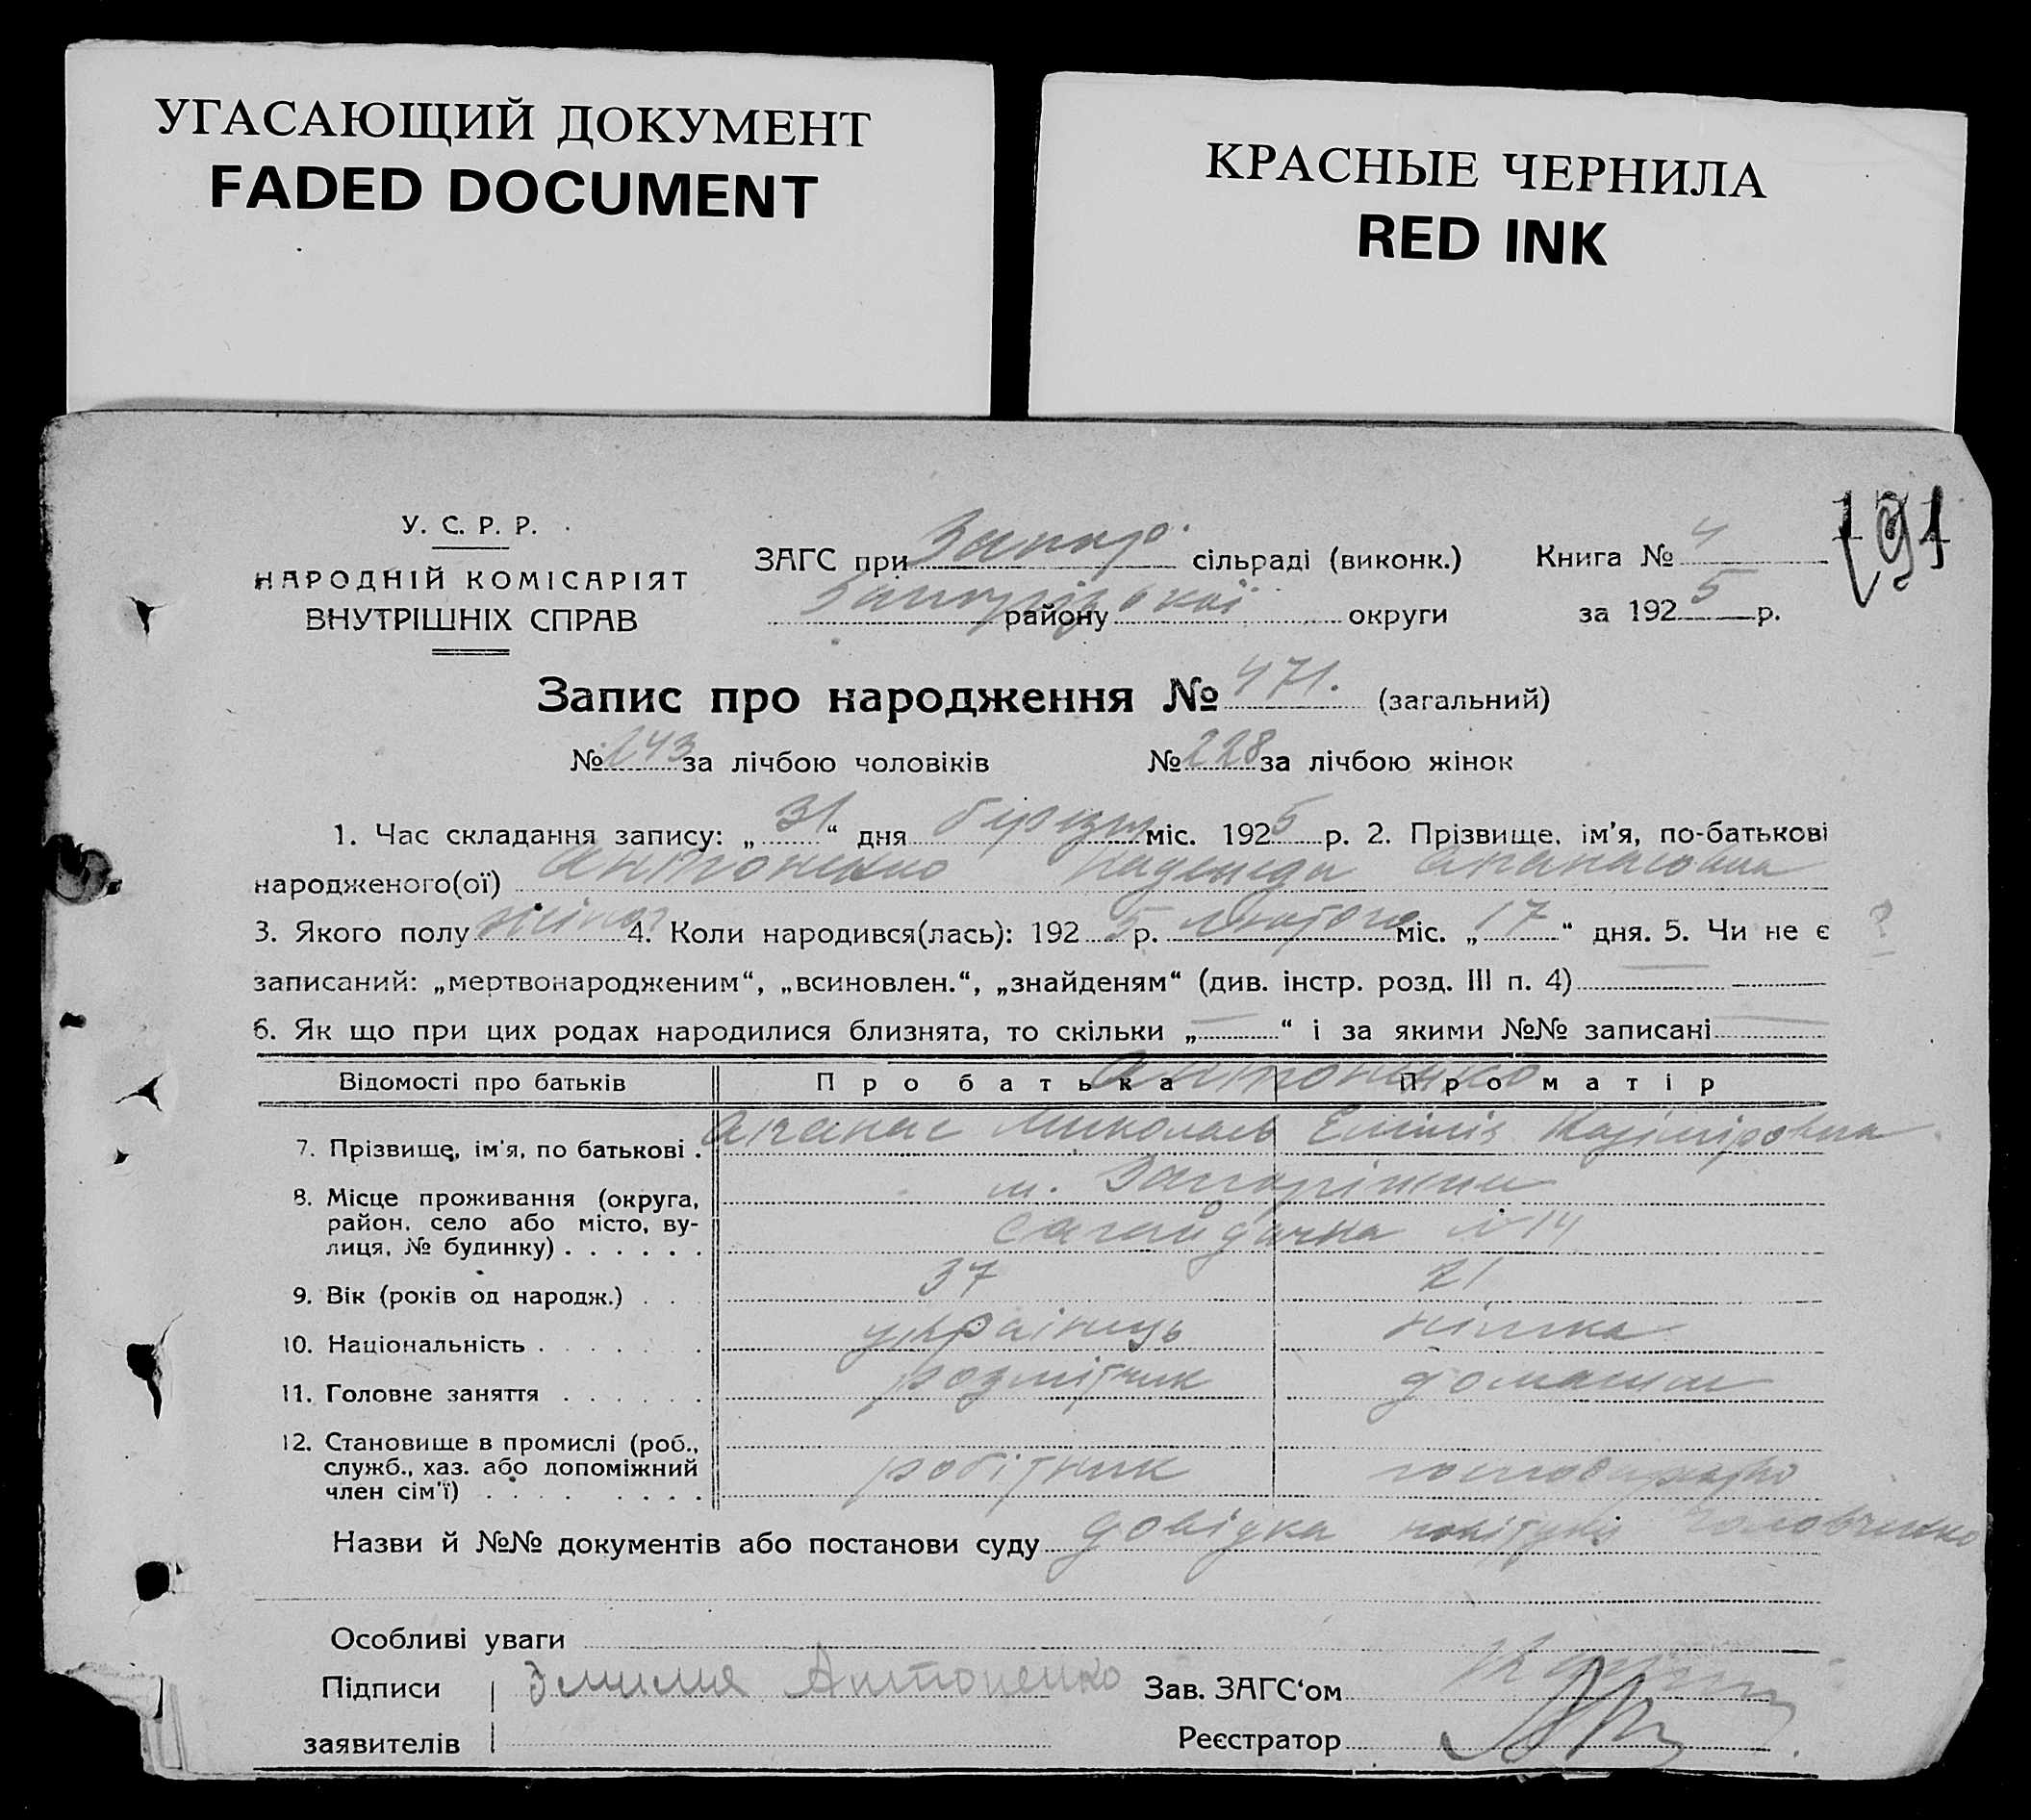 УГАСАЮЩИЙ ДОКУМЕНТ
FADED DOCUMENT
КРАСНЫЕ ЧЕРНИЛА
RED INK
191
У. С. Р. Р.
НАРОДНІЙ КОМІСАРІЯТ
ВНУТРІШНІХ СПРАВ
ЗАГС при Запор. сільраді (виконк.) Книга № 4
Запорізької району округи за 1925 р.
Запис про народження № 471. (загальний)
№ 243 за лічбою чоловіків № 228 за лічбою жінок
1. Час складання запису: „31“ дня березня міс. 1925 р. 2. Прізвище, ім'я, по-батькові
народженого(ої) Антоненко Надежда Апанасовна
3. Якого полу жіноч 4. Коли народився(лась): 1925 р. лютого міс. „17“ дня. 5. Чи не є
записаний: „мертвонародженим“, „всиновлен.“, „знайденям“ (див. інстр. розд. III п. 4)
6. Як що при цих родах народилися близнята, то скільки „ “ і за якими №№ записані
Відомості про батьків Про батька Про матір
Антоненко
7. Прізвище, ім'я, по батькові . Апанас Миколаєв Емілія Казіміровна
8. Місце проживання (округа, район, село або місто, вулиця, № будинку) . . . . . . м. Запоріжжя
Сагайдачна № 14
9. Вік (років од народж.) . . 37 21
10. Національність . . . . . . українець німка
11. Головне заняття . . . . . розмітник домашн
12. Становище в промислі (роб.,
служб., хаз. або допоміжний
член сім'ї) . . . . . . . . робітник
Назви й №№ документів або постанови суду довідка
Особливі уваги
Підписи Эмилия Антоненко Зав. ЗАГС‘ом
заявителів Реєстратор